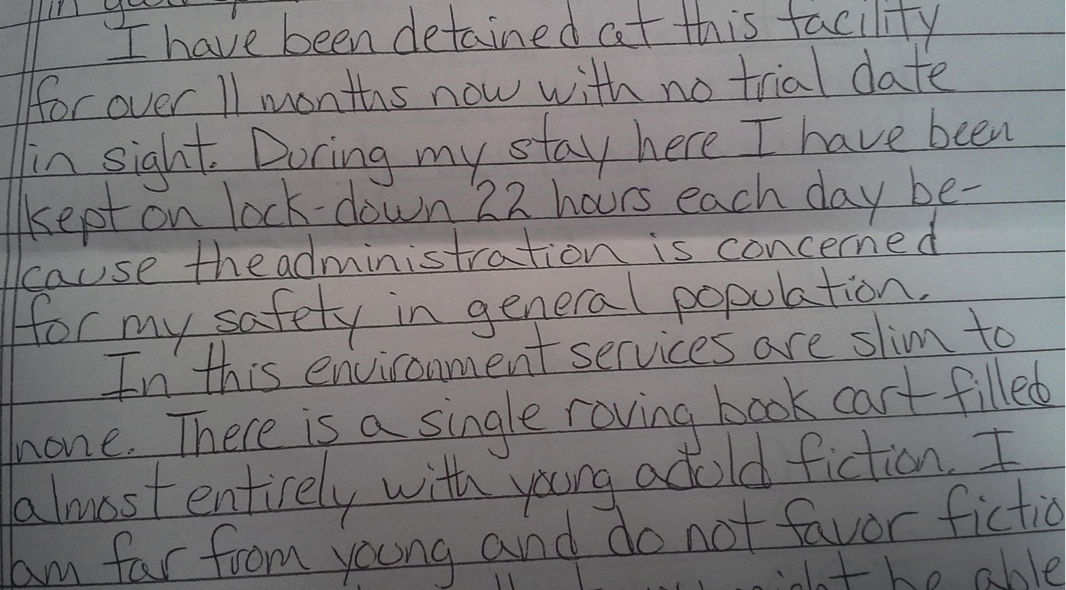 I have been detained at this facility
for over 11 months now with no trial date
in sight. During my stay here I have been
kept on lock-down 22 hours each day be-
cause the administration is concerned
for my safety in general population.
In this environment services are slim to
none. There is a single roving book cart filled
almost entirely with young adold fiction. I
am far from young and do not favor fictio
might be able